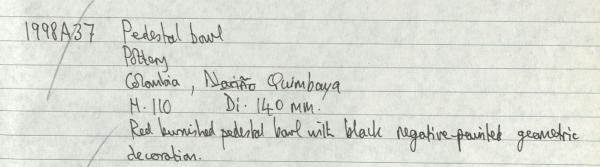 1998A37 Pedestal bowl
Pottery
Colombia, Nariño Quimbaya
H. 110 Di. 140 mm.
Red burnished pedestal bowl with black negative-painted geometric
decoration.